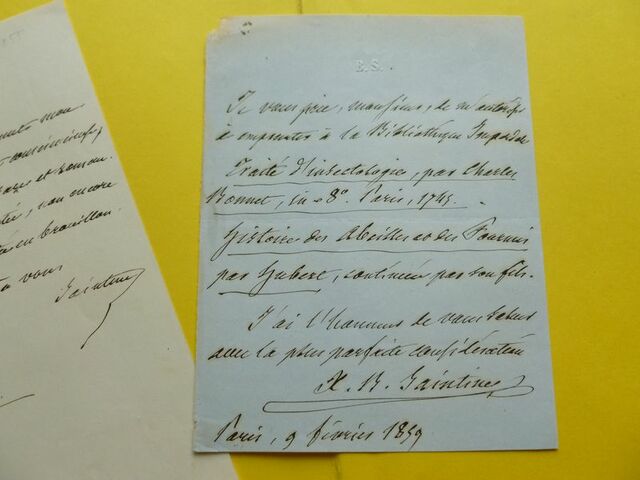 ment mon
consciencieux,
et roman.
, non encore
en brouillon.
à vous
Saintine
E.S.
Je vous prie, monsieur, de m'autoriser
à emprunter à la Bibliothèque Impériale
Traité d'insectologie, par Charles
Bonnet, in-8º. Paris, 1745.
Histoire des Abeilles et des Fourmis
par Huber, continuée par son fils.
J'ai l'honneur de vous saluer
avec la plus parfaite considération
X. B. Saintine
Paris, 9 février 1859